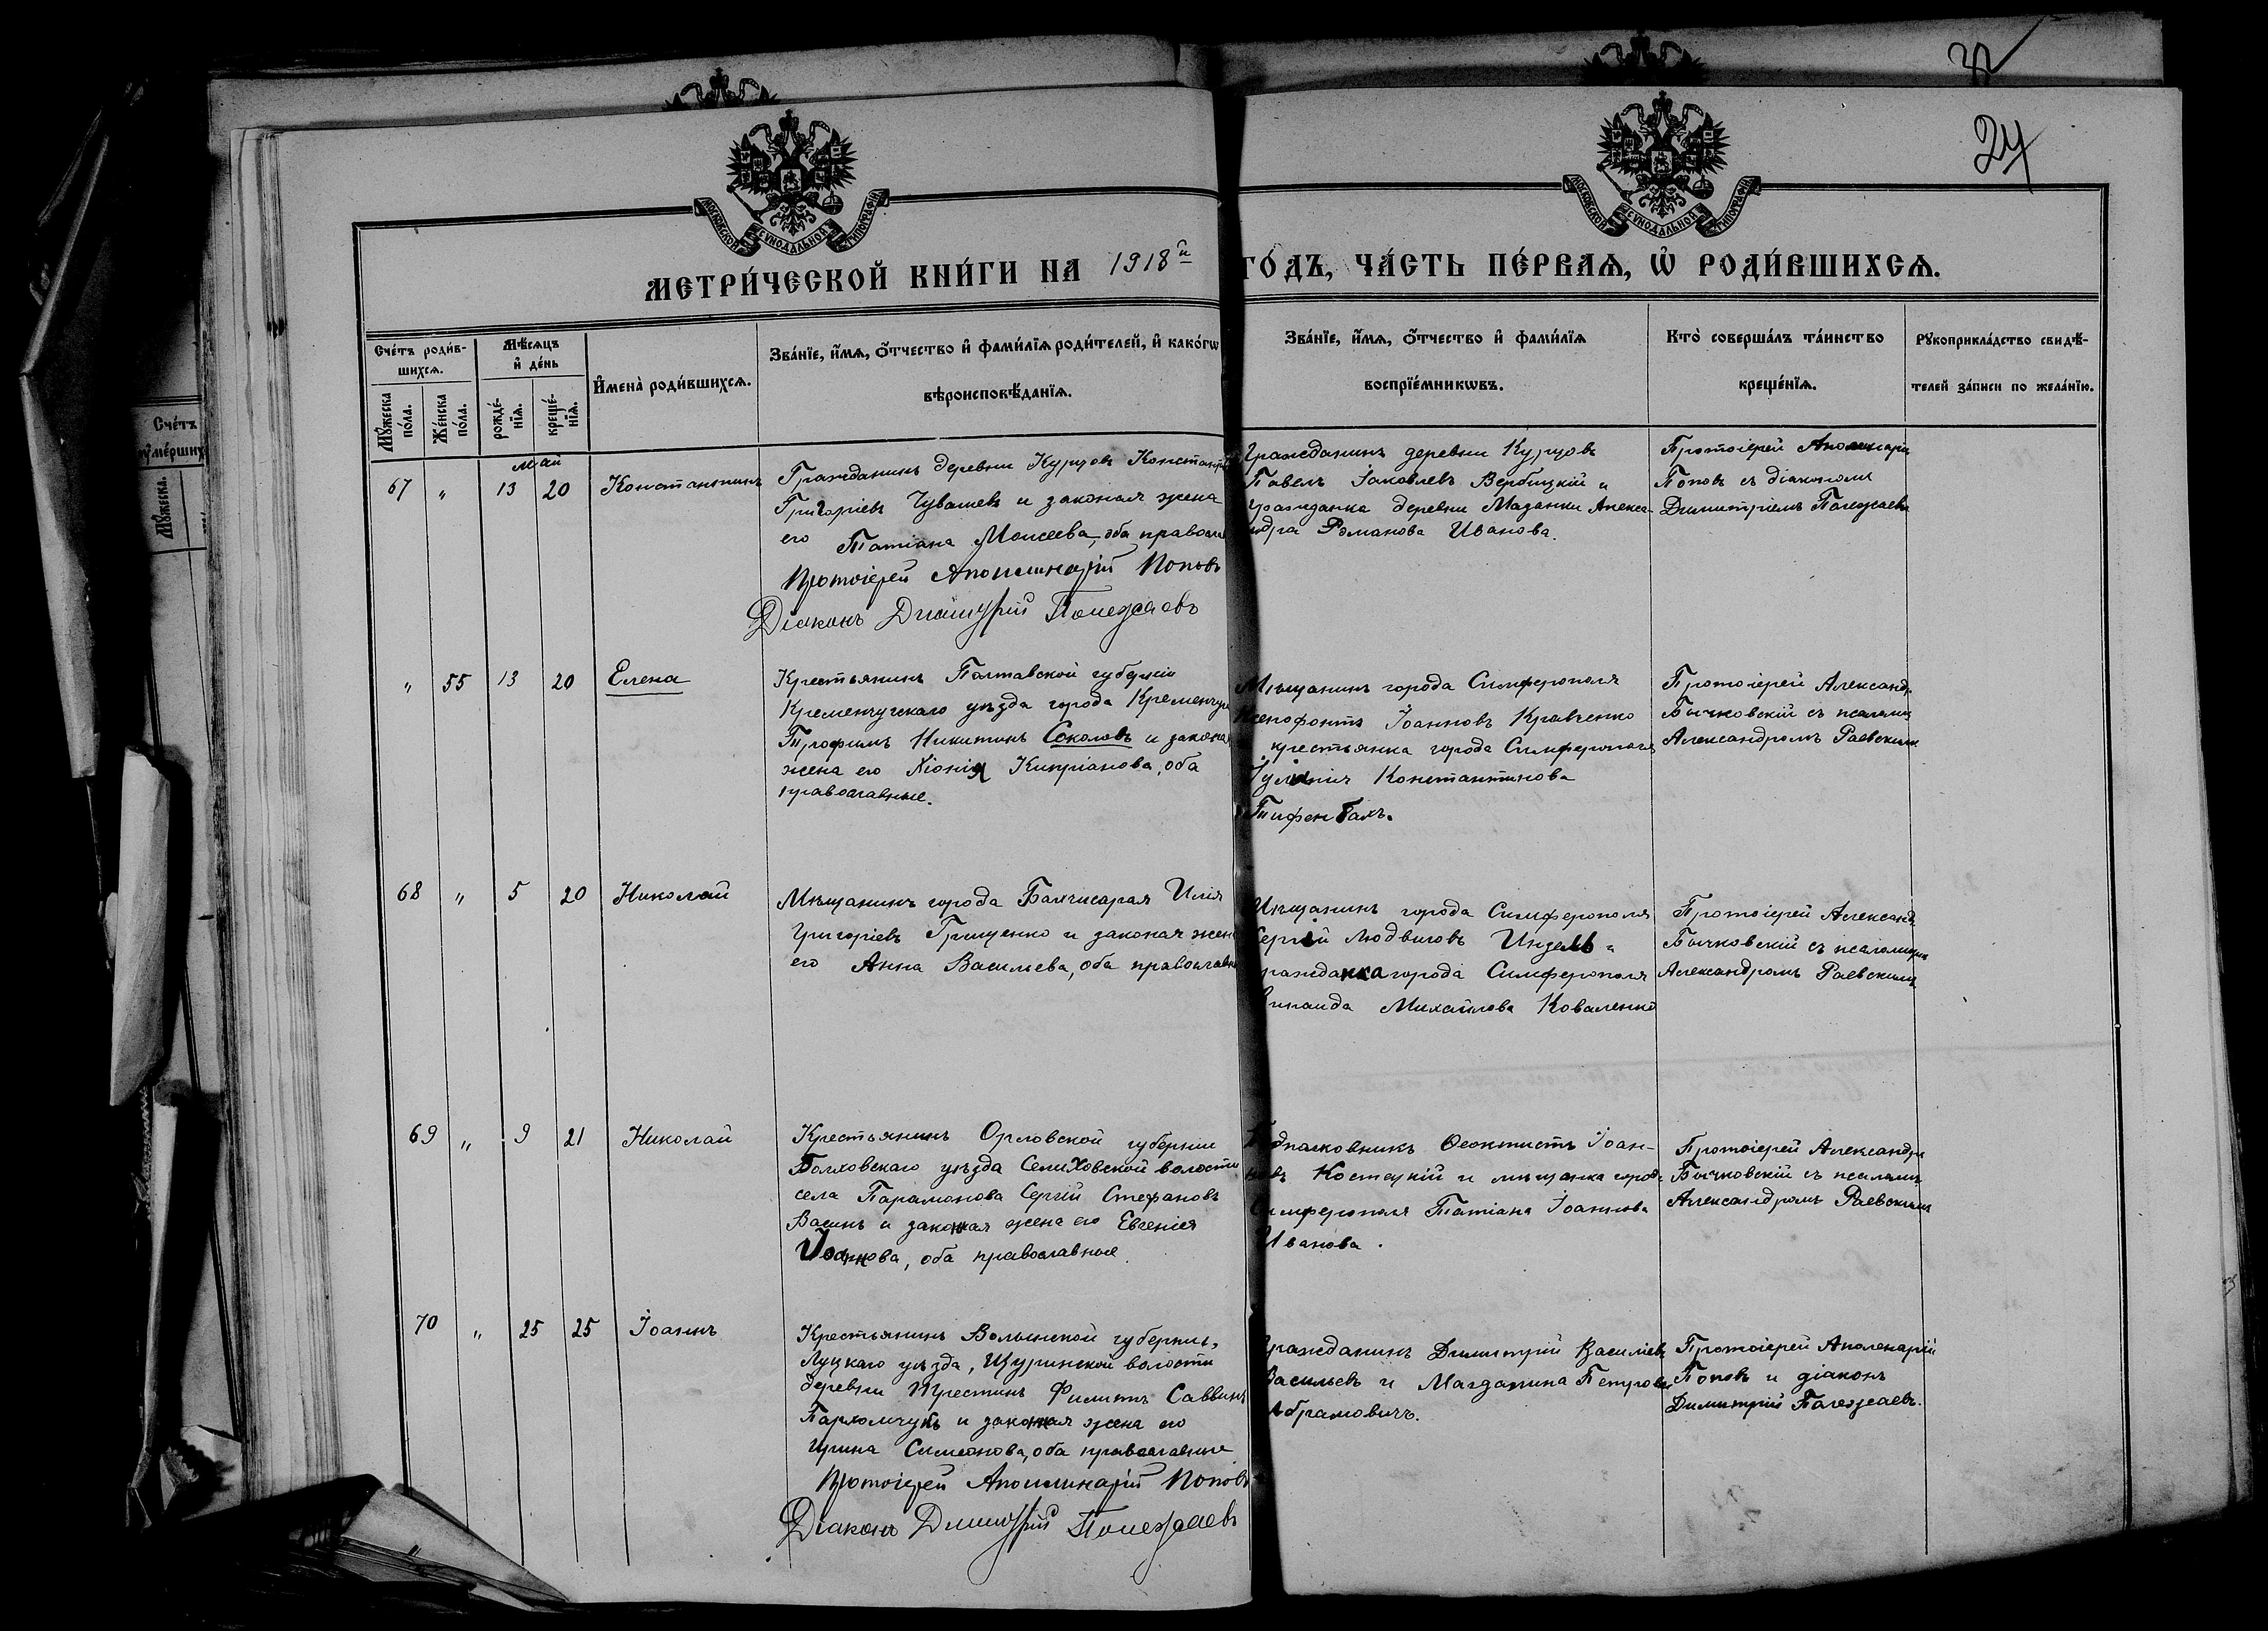 32
24
МОСКОВСКОЙ СѴНОДАЛЬНОЙ ТИПОГРАФІИ
МОСКОВСКОЙ СѴНОДАЛЬНОЙ ТИПОГРАФІИ
МЕТРИ́ЧЕСКОЙ КНИ́ГИ НА 1918й ГО́ДЪ, ЧА́СТЬ ПЕ́РВАѦ, Ѡ҆ РОДИ́ВШИХСѦ.
Сче́тъ роди́в-
шихсѧ.
Мꙋ́жеска по́ла.
Же́нска по́ла.
Мѣ́сѧцъ и҆ де́нь
рожде́-нїѧ.
креще́-нїѧ.
И҆мена̀ роди́вшихсѧ.
Зва́нїе, и҆́мѧ, ѻ҆́тчество и҆ фами́лїѧ роди́телей, и҆ како́гѡ
вѣроисповѣ́данїѧ.
Зва́нїе, и҆́мѧ, ѻ҆́тчество и҆ фами́лїѧ
воспрїе́мникѡвъ.
Кто̀ соверша́лъ та́инство
креще́нїѧ.
Рꙋкоприкла́дство свидѣ́-
телей за́писи по жела́нїю.
Сче́тъ
Мꙋ́жеска.
май
67 " 13 20 Константинъ
Гражданинъ деревни Курцовъ
Григоріевъ Чувашевъ и законая жена
его Татіана Моисеева, оба
Протоіерей Аполлинарій Поповъ
Діаконъ Димитрій Полежаевъ
Гражданинъ деревни Курцовъ
Павелъ Іаковлевъ Вербицкій и
гражданка деревни Мазанки Алекса-
ндра Романова Иванова.
Протоіерей
Поповъ съ діакономъ
Димитріемъ
" 55 13 20 Елена
Крестьянинъ Полтавской губерніи
Кременчугскаго уѣзда города
Трофимъ Никитинъ Соколовъ и
жена его Хіонія Кипріанова, оба
православные.
Мѣщанинъ города Симферополя
Ксенофонтъ Іоанновъ Кравченко
крестьянка города Симферополя
Іуліанія Константинова
Тифенбахъ.
Протоіерей
Бычковскій съ
Александромъ Раевскимъ
68 " 5 20 Николай
Мѣщанинъ города Бахчисарая Илія
Григоріевъ Грищенко и законая
его Анна Васильева, оба
Мѣщанинъ города Симферополя
Сергій Людвиговъ Инзель и
гражданка города Симферополя
Михайлова Коваленко
Протоіерей
Бычковскій съ
Александромъ Раевскимъ
69 " 9 21 Николай
Крестьянинъ Орловской губерніи
Болховскаго уѣзда Селиховской волости
села Парамонова Сергій Стефановъ
Васинъ и законная жена его Евгенія
Іоаннова, оба православные.
Подполковникъ Ѳеоктистъ Іоан-
новъ Костецкій и мѣщанка
Симферополя Татіана Іоаннова
Иванова.
Протоіерей
Бычковскій съ
Александромъ Раевскимъ
70 " 25 25 Іоаннъ
Крестьянинъ Волынской губерніи,
Луцкаго уѣзда, Щуринской волости
деревни Филиппъ Саввинъ
Пархомчукъ и законная жена его
Ирина Симеонова, оба православные
Протоіерей Аполлинарій Поповъ
Діаконъ Димитрій Полежаевъ
Гражданинъ Димитрій Василіевъ
Васильевъ и Магдалина Петрова
Абрамовичъ.
Протоіерей Аполенарій
Поповъ и діаконъ
Димитрій Полежаевъ.